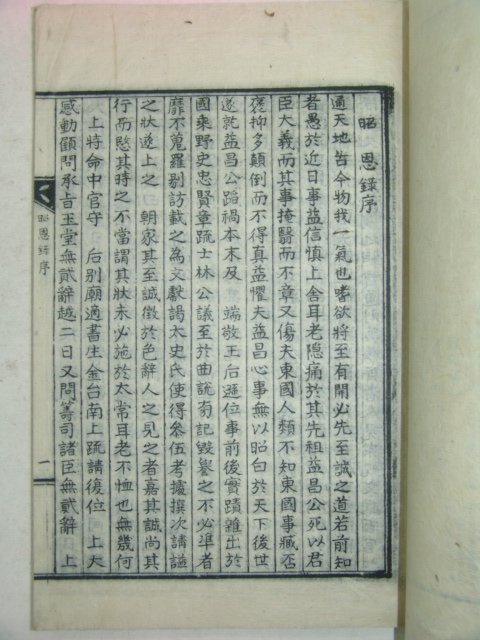 昭恩錄序
通天地古今物我一氣也嗜欲將至有開必先至誠之道若前知
者愚於近日事益信愼上舍耳老隐痛於其先祖益昌公死以君
臣大義而其事掩翳而不章又傷夫東國人類不知東國事臧否
褒抑多顚倒而不得真益懼夫益昌心事無以昭白於天下後世
遂就益昌公路禍本末及 端敬王后遜位事前後實蹟雜出於
國乘野史忠賢章䟽士林公議至於曲說旁記毁譽之不必準者
靡不蒐羅剔訪載之為文獻謁太史氏使得叅伍考據撰次請謚
之狀遂上之 朝家其至誠徵於色辭人之見之者嘉其誠尚其
行而愍其時之不當謂其狀未必施於太常耳老不恤也無幾何
上特命中官守 后别廟適書生金台南上䟽請復位 上大
感動顧問承旨玉堂無貳辭越二日又問籌司諸臣無貳辭 上
昭恩錄序
一